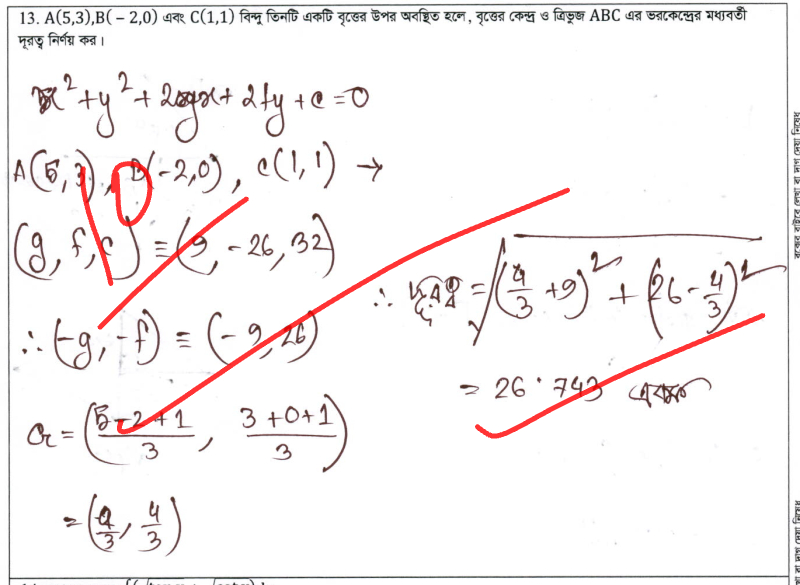 13. A(5,3),B(−2,0) এবং C(1,1) বিন্দু তিনটি একটি বৃত্তের উপর অবস্থিত হলে, বৃত্তের কেন্দ্র ও ত্রিভুজ ABC এর ভরকেন্দ্রের মধ্যবর্তী
দূরত্ব নির্ণয় কর।
x² + y² + 2gx + 2fy + c = 0
A(5,3), B(−2,0), C(1,1) →
(g, f, c) ≡ (9, −26, 32)
∴ (−g, −f) ≡ (−9, 26)
G = ((5−2+1)/3, (3+0+1)/3)
= (4/3, 4/3)
∴ দূরত্ব = √((4/3 + 9)² + (26 − 4/3)²)
= 26.743 একক